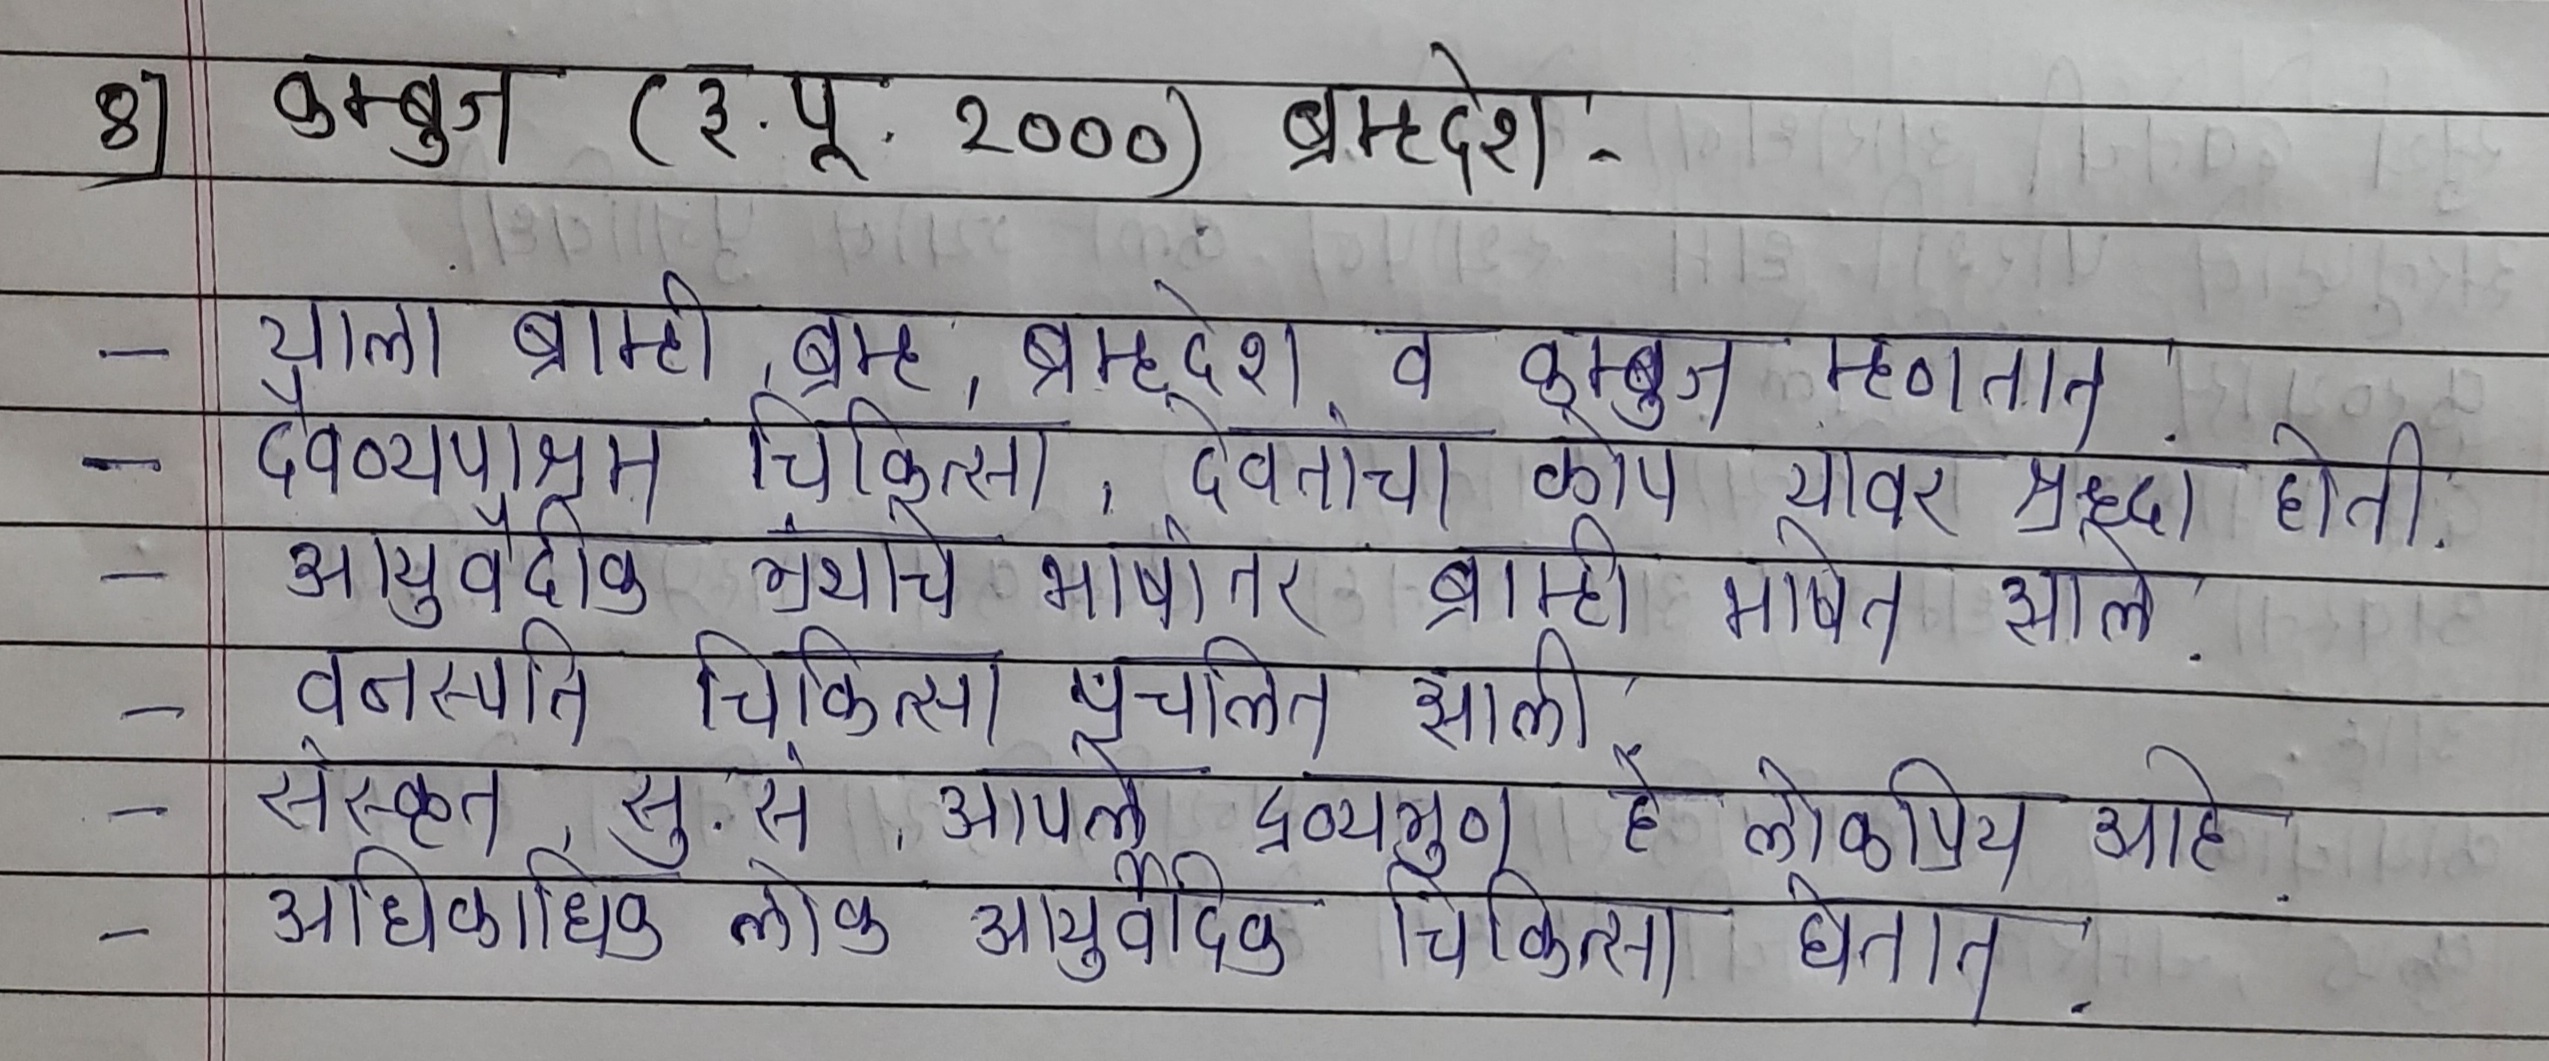 8] कुम्बुज (इ.पू. 2000) ब्रम्हदेश :-
- याला ब्राम्ही, ब्रम्ह, ब्रम्हदेश व कुम्बुज म्हणतात.
- दैवव्यपाश्रम चिकित्सा, देवतांचा कोप यावर श्रद्धा होती.
- आयुर्वेदीक ग्रंथाचे भाषांतर ब्राम्ही भाषेत झाले.
- वनस्पति चिकित्सा प्रचलित झाली.
- संस्कृत, सु.सं, आपले द्रव्यगुण हे लोकप्रिय आहे.
- अधिकाधिक लोक आयुर्वेदिक चिकित्सा घेतात.